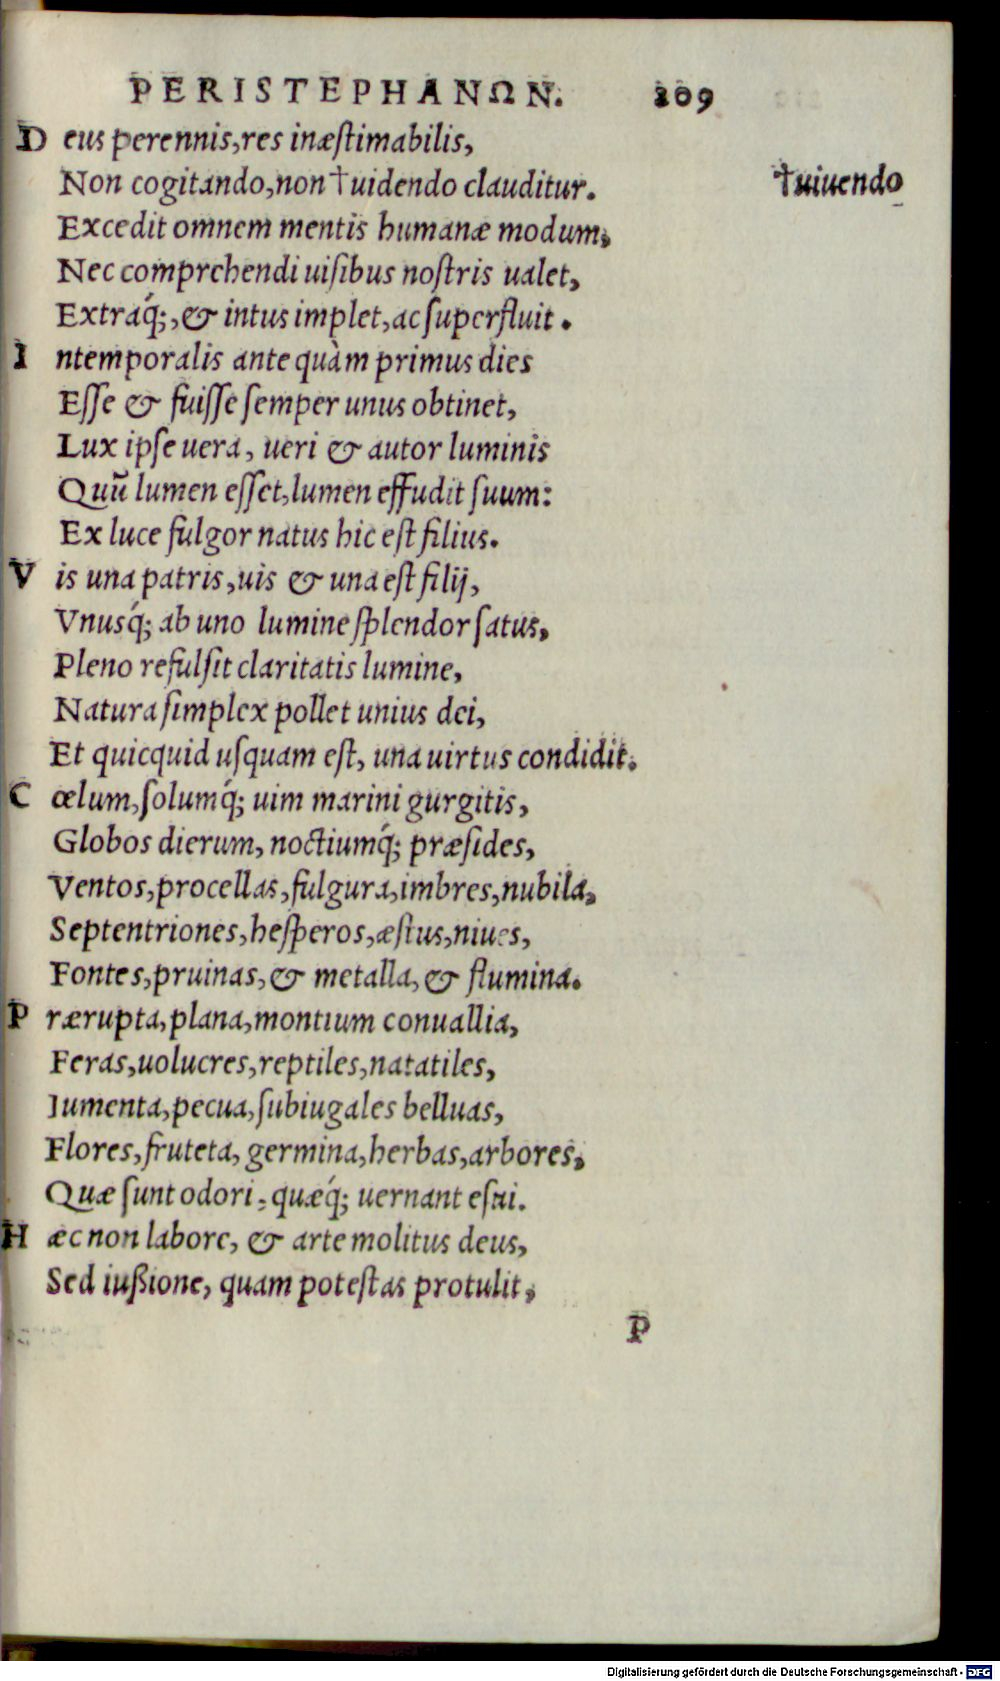 PERISTEPHANΩN. 209
D eus perennis, res inæstimabilis,
Non cogitando, non †uidendo clauditur. †uiuendo
Excedit omnem mentis humanæ modum,
Nec comprehendi uisibus nostris ualet,
Extraq́;, & intus implet, ac superfluit.
I ntemporalis ante quàm primus dies
Esse & fuisse semper unus obtinet,
Lux ipse uera, ueri & autor luminis
Quū lumen esset, lumen effudit suum:
Ex luce fulgor natus hic est filius.
V is una patris, uis & una est filij,
Vnusq́; ab uno lumine splendor satus,
Pleno refulsit claritatis lumine,
Natura simplex pollet unius dei,
Et quicquid usquam est, una uirtus condidit.
C œlum, solumq́; uim marini gurgitis,
Globos dierum, noctiumq́; præsides,
Ventos, procellas, fulgura, imbres, nubila,
Septentriones, hesperos, æstus, niues,
Fontes, pruinas, & metalla, & flumina.
P rærupta, plana, montium conuallia,
Feras, uolucres, reptiles, natatiles,
Iumenta, pecua, subiugales belluas,
Flores, fruteta, germina, herbas, arbores,
Quæ sunt odori, quæq́; uernant esui.
H æc non labore, & arte molitus deus,
Sed iußione, quam potestas protulit,
P
Digitalisierung gefördert durch die Deutsche Forschungsgemeinschaft - DFG